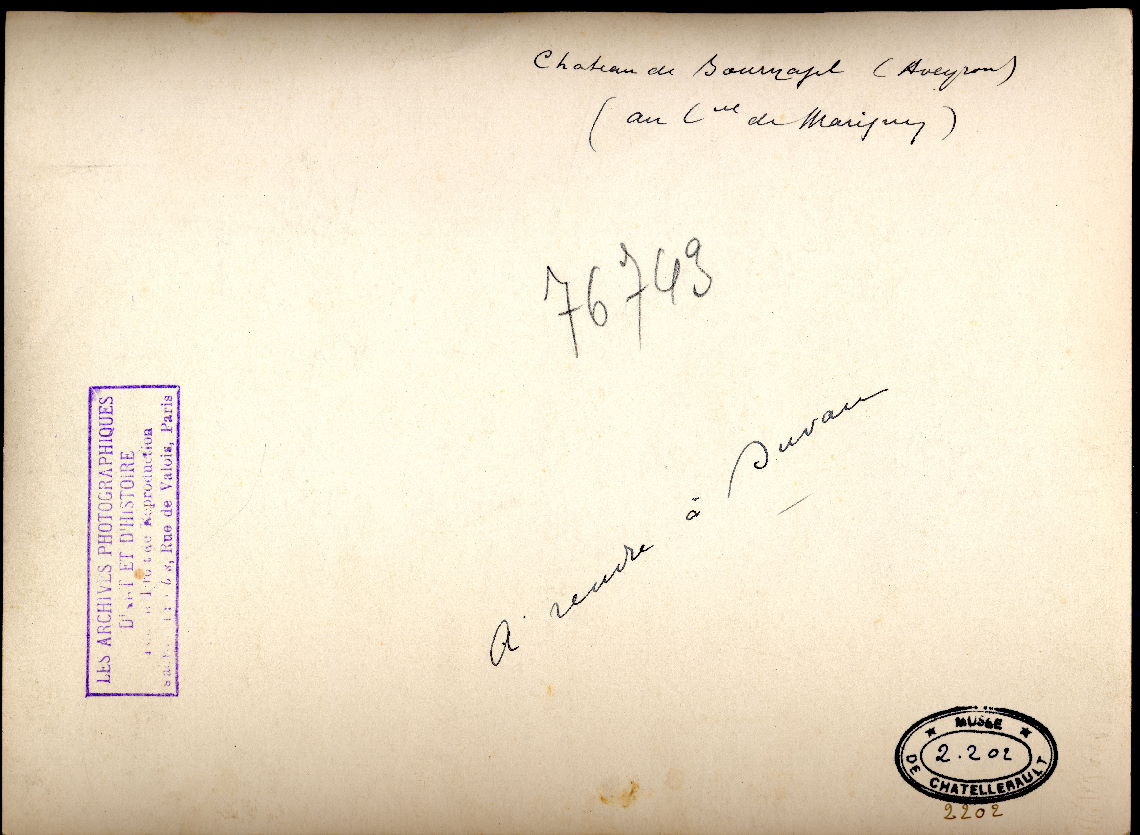 Chateau de Bournazel (Aveyron)
(au Cte de Marigny)
76743
A rendre à
LES ARCHIVES PHOTOGRAPHIQUES
D'ART ET D'HISTOIRE
de Reproduction
Rue de Valois, Paris
MUSÉE
2.202
DE CHATELLERAULT
2202